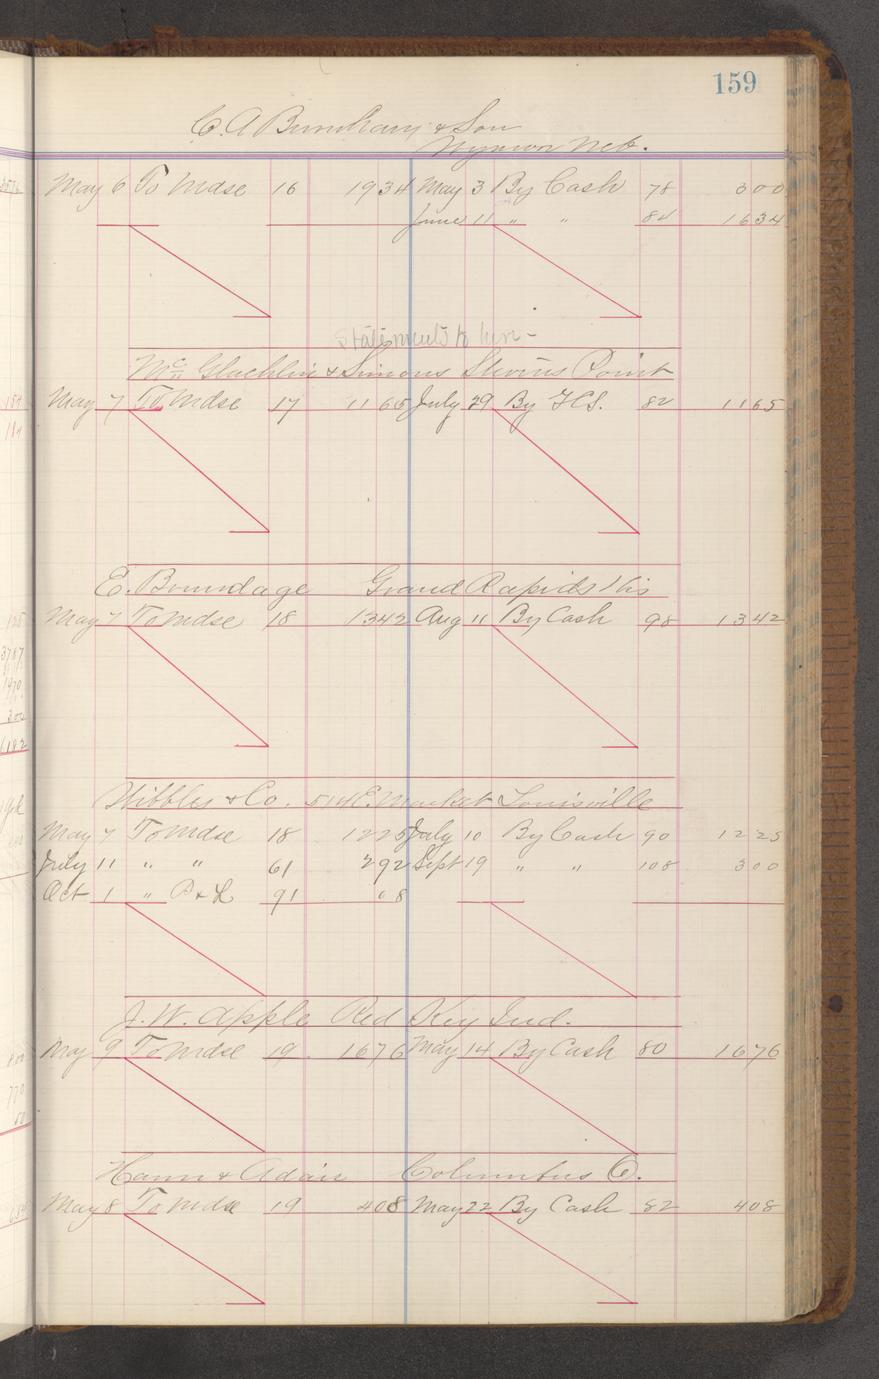 159
C. A. Burnham & Son
Wymore Neb.
May 6 To Mdse 16 1934 May 3 By Cash 78 300
June 11 " " 84 1634
Statements to him -
Mc Glachlin & Simons Stevens Point
May 7 To Mdse 17 1165 July 29 By 82 1165
E. Brundage Grand Rapids Wis
May 7 To Mdse 18 1342 Aug 11 By Cash 98 1342
Hibbles & Co. 514 E. Market Louisville
May 7 To Mdse 18 1225 July 10 By Cash 90 1225
July 11 " " 61 292 Sept 19 " " 108 300
Oct 1 " P & L 91 08
J. W. Apple Red Key Ind.
May 9 To Mdse 19 1676 May 14 By Cash 80 1676
Hann & Adair Columbus O.
May 8 To Mdse 19 408 May 22 By Cash 82 408